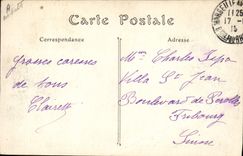 Carte Postale
Correspondance
Adresse
Grosses caresses
de tous
Claire
Mme Charles
Villa St Jean
Boulevard de Perolles
Fribourg
Suisse
11 25
17
15